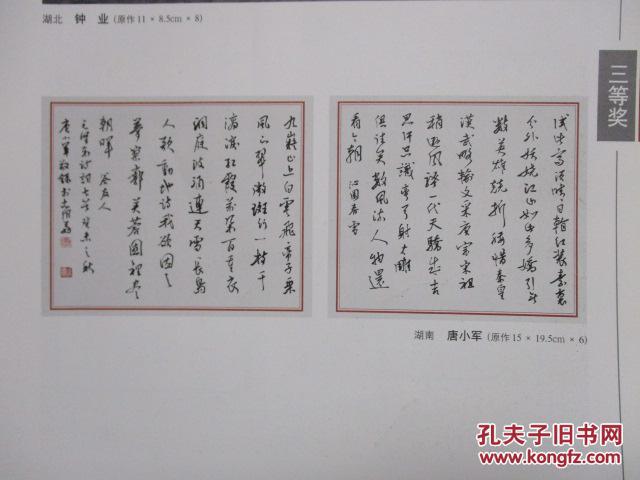 湖北 钟 业 (原作11 × 8.5cm × 8)
三等奖
试比高须晴日看红装素裹
分外妖娆江山如此多娇引无
数英雄竞折腰惜秦皇
汉武略输文采唐宗宋祖
稍逊风骚一代天骄成吉
思汗只识弯弓射大雕
俱往矣数风流人物还
看今朝 沁园春雪
九嶷山上白云飞帝子乘
风下翠微斑竹一枝千
滴泪红霞万朵百重衣
洞庭波涌连天雪长岛
人歌动地诗我欲因之
梦寥廓芙蓉国里尽
朝晖 答友人
毛泽东诗词七首癸未之秋
唐小军敬录于
湖南 唐小军 (原作15 × 19.5cm × 6)
孔夫子旧书网
www.kongfz.com